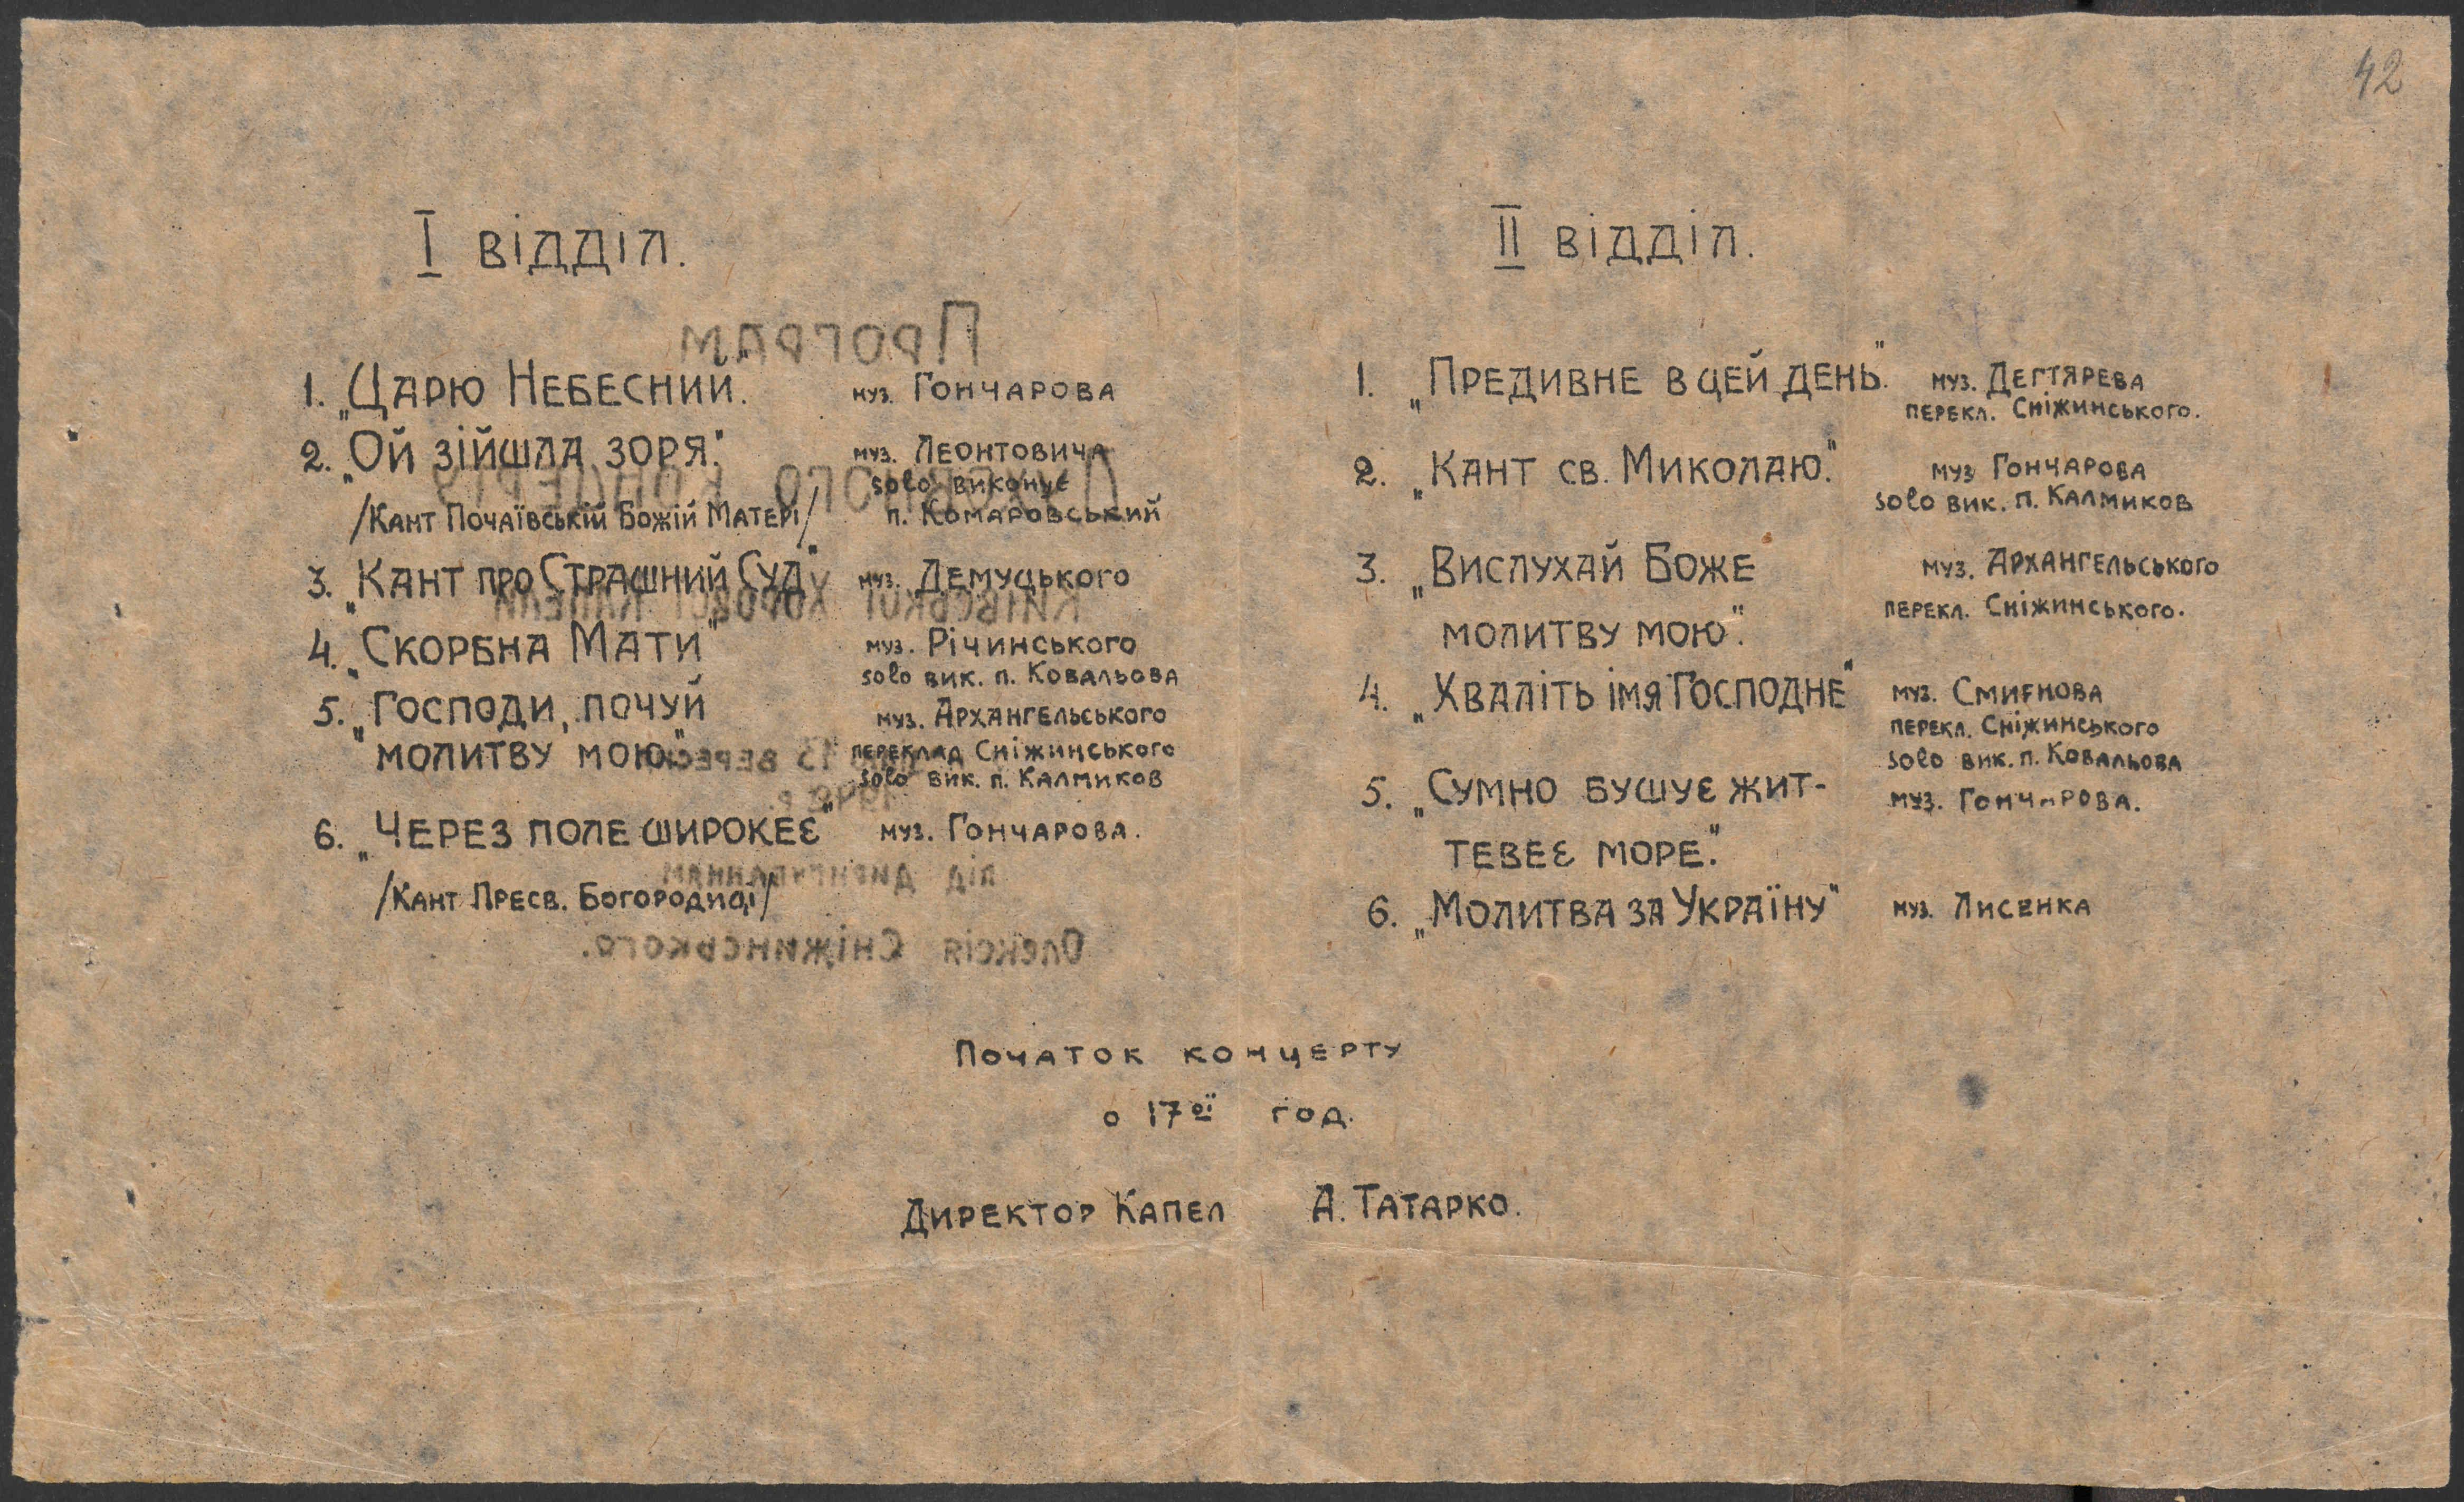 42
I відділ.
1. „Царю Небесний."
муз. Гончарова
2. „Ой зійшла зоря."
муз. Леонтовича
solo виконує
/Кант Почаївській Божій Матері/
п. Комаровський
3. „Кант про Страшний Суд"
муз. Демуцького
4. „Скорбна Мати"
муз. Річинського
solo вик. п. Ковальова
5. „Господи, почуй
муз. Архангельського
молитву мою"
переклад Сніжинського
solo вик. п. Калмиков
6. „Через поле широкеє"
муз. Гончарова.
/Кант Пресв. Богородиці/
II відділ.
1. „Предивне в цей день".
муз. Дегтярева
перекл. Сніжинського.
2. „Кант св. Миколаю."
муз Гончарова
solo вик. п. Калмиков
3. „Вислухай Боже
муз. Архангельського
перекл. Сніжинського.
молитву мою".
4. „Хваліть імя Господнє"
муз. Смирнова
перекл. Сніжинського
solo вик. п. Ковальова
5. „Сумно бушує жит-
муз. Гончарова.
тевеє море."
6. „Молитва за Україну"
муз. Лисенка
Програм
Духовного концерту
Київської хорової капели
15 вересня
під диригуванням
Олексія Сніжинського.
Початок концерту
о 17ої год.
Директор Капел А. Татарко.